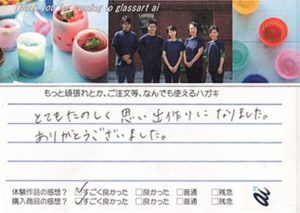 Thank you for coming to glassart ai
もっと頑張れとか、ご注文等、なんでも使えるハガキ
とてもたのしく思い出作りになりました。
ありがとうございました。
体験作品の感想？ ☑すごく良かった □良かった □普通 □残念
購入商品の感想？ ☑すごく良かった □良かった □普通 □残念
ai